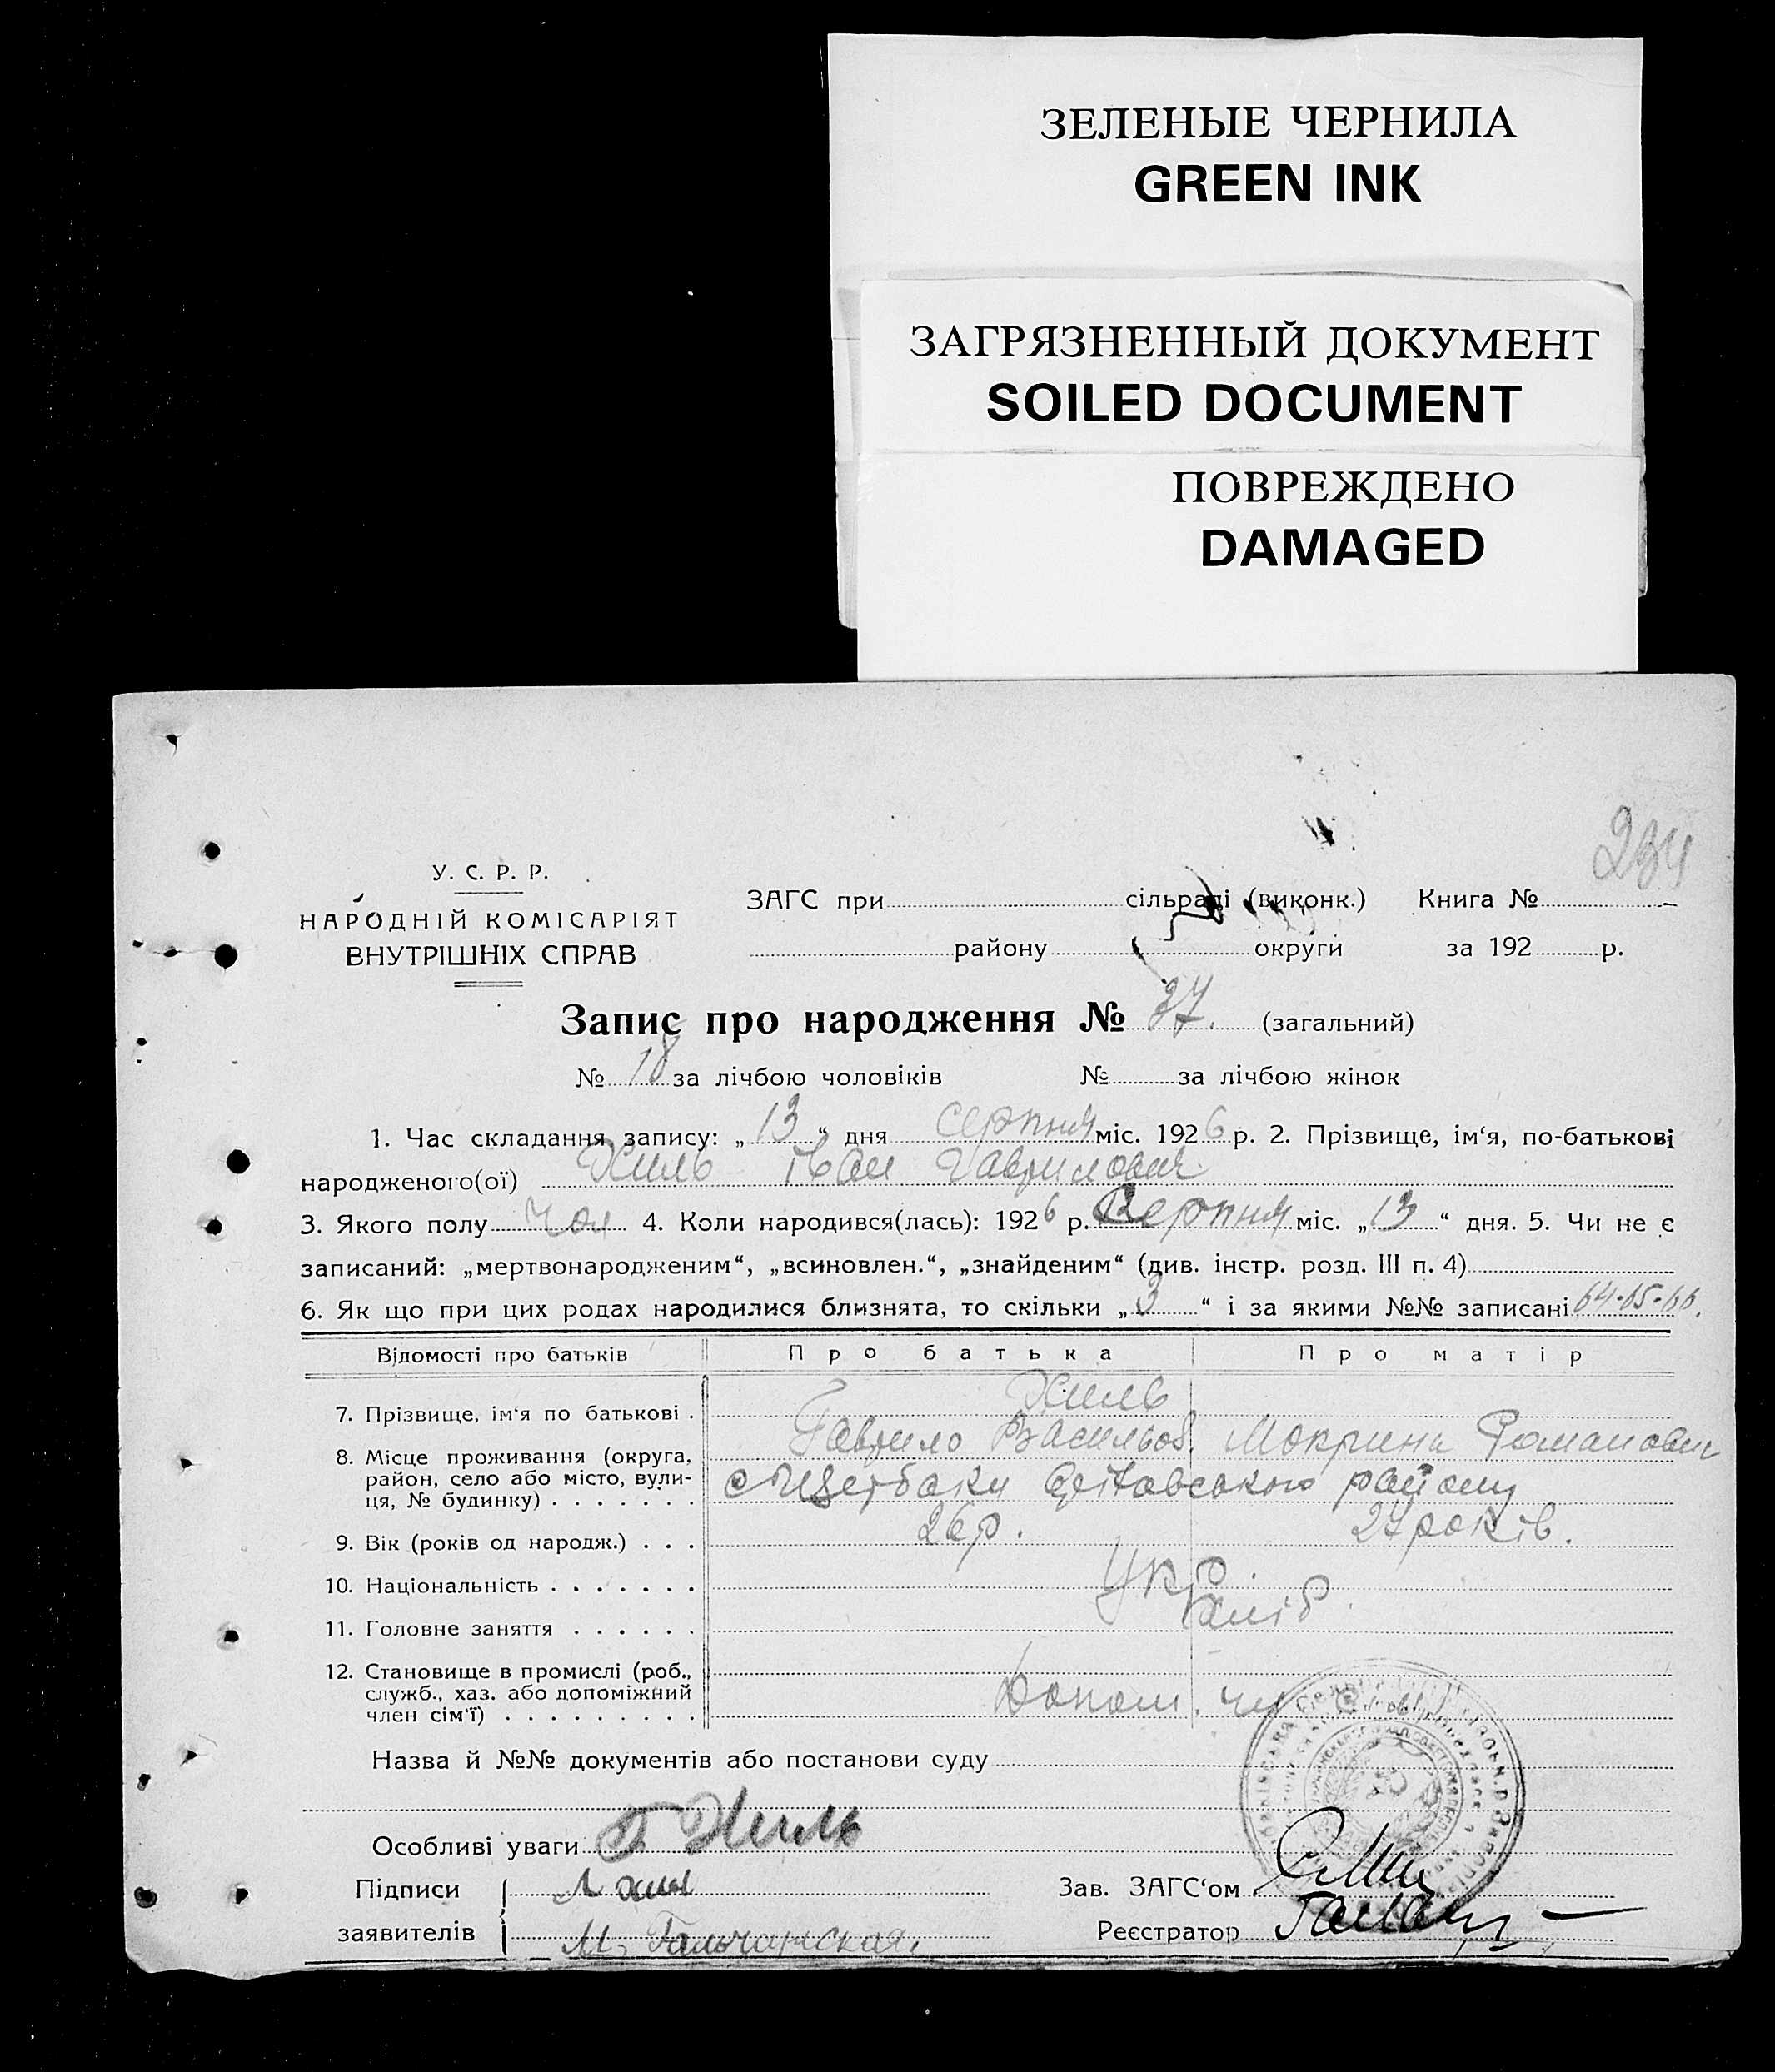 ЗЕЛЕНЫЕ ЧЕРНИЛА
GREEN INK
ЗАГРЯЗНЕННЫЙ ДОКУМЕНТ
SOILED DOCUMENT
ПОВРЕЖДЕНО
DAMAGED
234
У. С. Р. Р.
НАРОДНІЙ КОМІСАРІЯТ
ВНУТРІШНІХ СПРАВ
ЗАГС при сільраді (виконк.) Книга №
району округи за 192 р.
Запис про народження № 37. (загальний)
№ 18 за лічбою чоловіків № за лічбою жінок
1. Час складання запису: „13“ дня серпня міс. 1926 р. 2. Прізвище, ім‘я, по-батькові
народженого(ої) Хиль Іван Гаврилович
3. Якого полу чол 4. Коли народився(лась): 1926 р. Серпня міс. „13“ дня. 5. Чи не є
записаний: „мертвонародженим“, „всиновлен.“, „знайденим“ (див. інстр. розд. III п. 4)
6. Як що при цих родах народилися близнята, то скільки „3“ і за якими №№ записані 64-65-66.
Відомості про батьків Про батька Про матір
Хиль
7. Прізвище, ім‘я по батькові .
Гаврило Васильов. Мокрина Романович
8. Місце проживання (округа,
район, село або місто, вули-
ця, № будинку) . . . . . . .
с Щербаки району
26 р. 27 років.
9. Вік (років од народж.) . . .
10. Національність . . . . . . .
Укр.
хліб.
11. Головне заняття . . . . . .
12. Становище в промислі (роб.,
служб., хаз. або допоміжний
член сім‘ї) . . . . . . . . .
Допом. чл
Назва й №№ документів або постанови суду
Особливі уваги Г Хиль
Підписи
заявителів
Зав. ЗАГС‘ом
Реєстратор
М. Гальчанская.